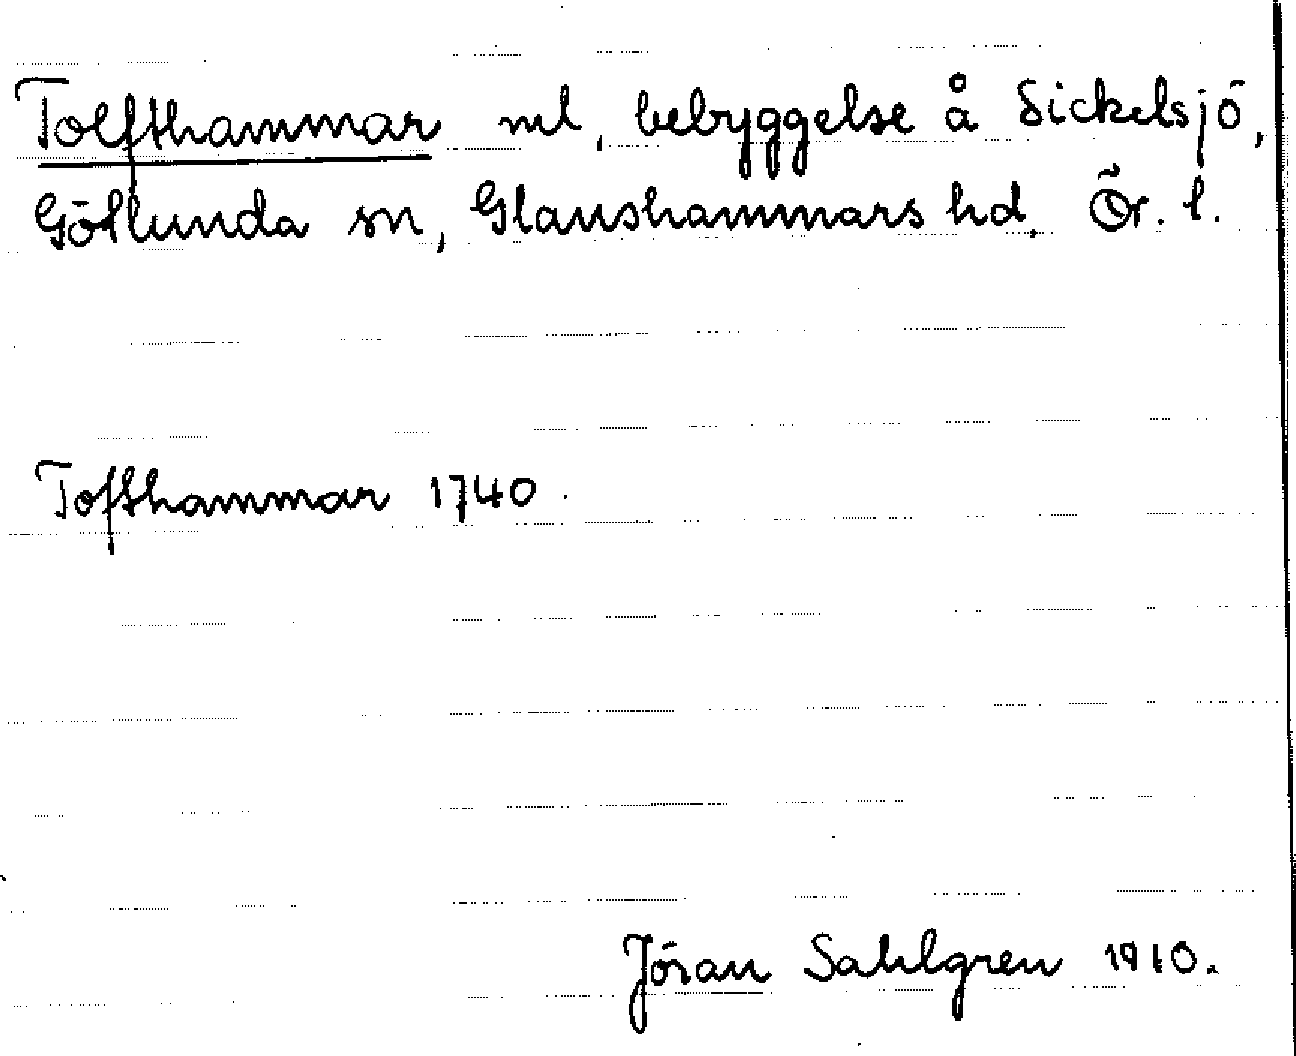 Tolfthammar ml, bebyggelse å Sickelsjö,
Götlunda sn, Glanshammars hd. Ör. l.
Tofthammar 1740.
Jöran Sahlgren 1910.